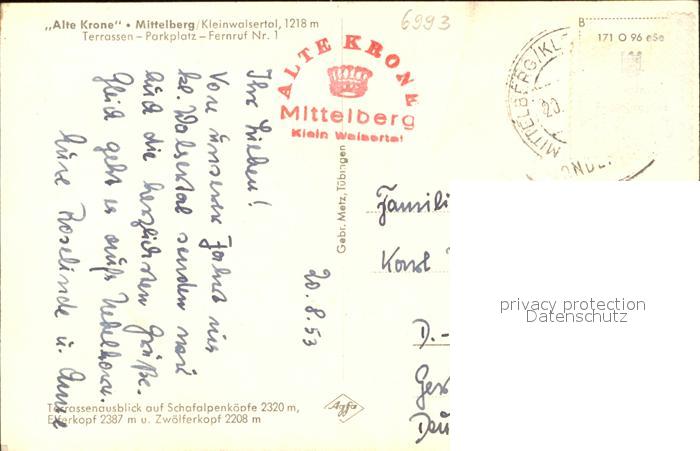 „Alte Krone" • Mittelberg/Kleinwalsertal, 1218 m
Terrassen – Parkplatz – Fernruf Nr. 1
6993
ALTE KRONE
Mittelberg
Klein Walsertal
B
171 O 96 eSe
MITTELBERG/KLE
20.
Ihr Lieben!
Von unserer Fahrt ins
kl. Walsertal senden wir
Euch die herzlichsten Grüße.
Gleich geht es aufs Nebelhorn.
Eure Roselinde u. Anne
20.8.53
Gebr. Metz, Tübingen
Famili
Karl
D.-
Ger
Deu
privacy protection
Datenschutz
Terrassenausblick auf Schafalpenköpfe 2320 m,
Elferkopf 2387 m u. Zwölferkopf 2208 m
Agfa